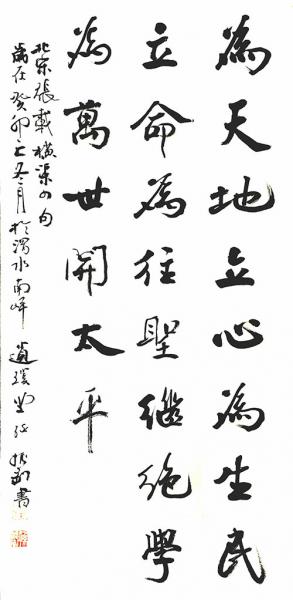 為天地立心為生民
立命為往聖繼絶學
為萬世開太平
北宋張載橫渠四句
歲在癸卯之冬月於渭水南岸
書